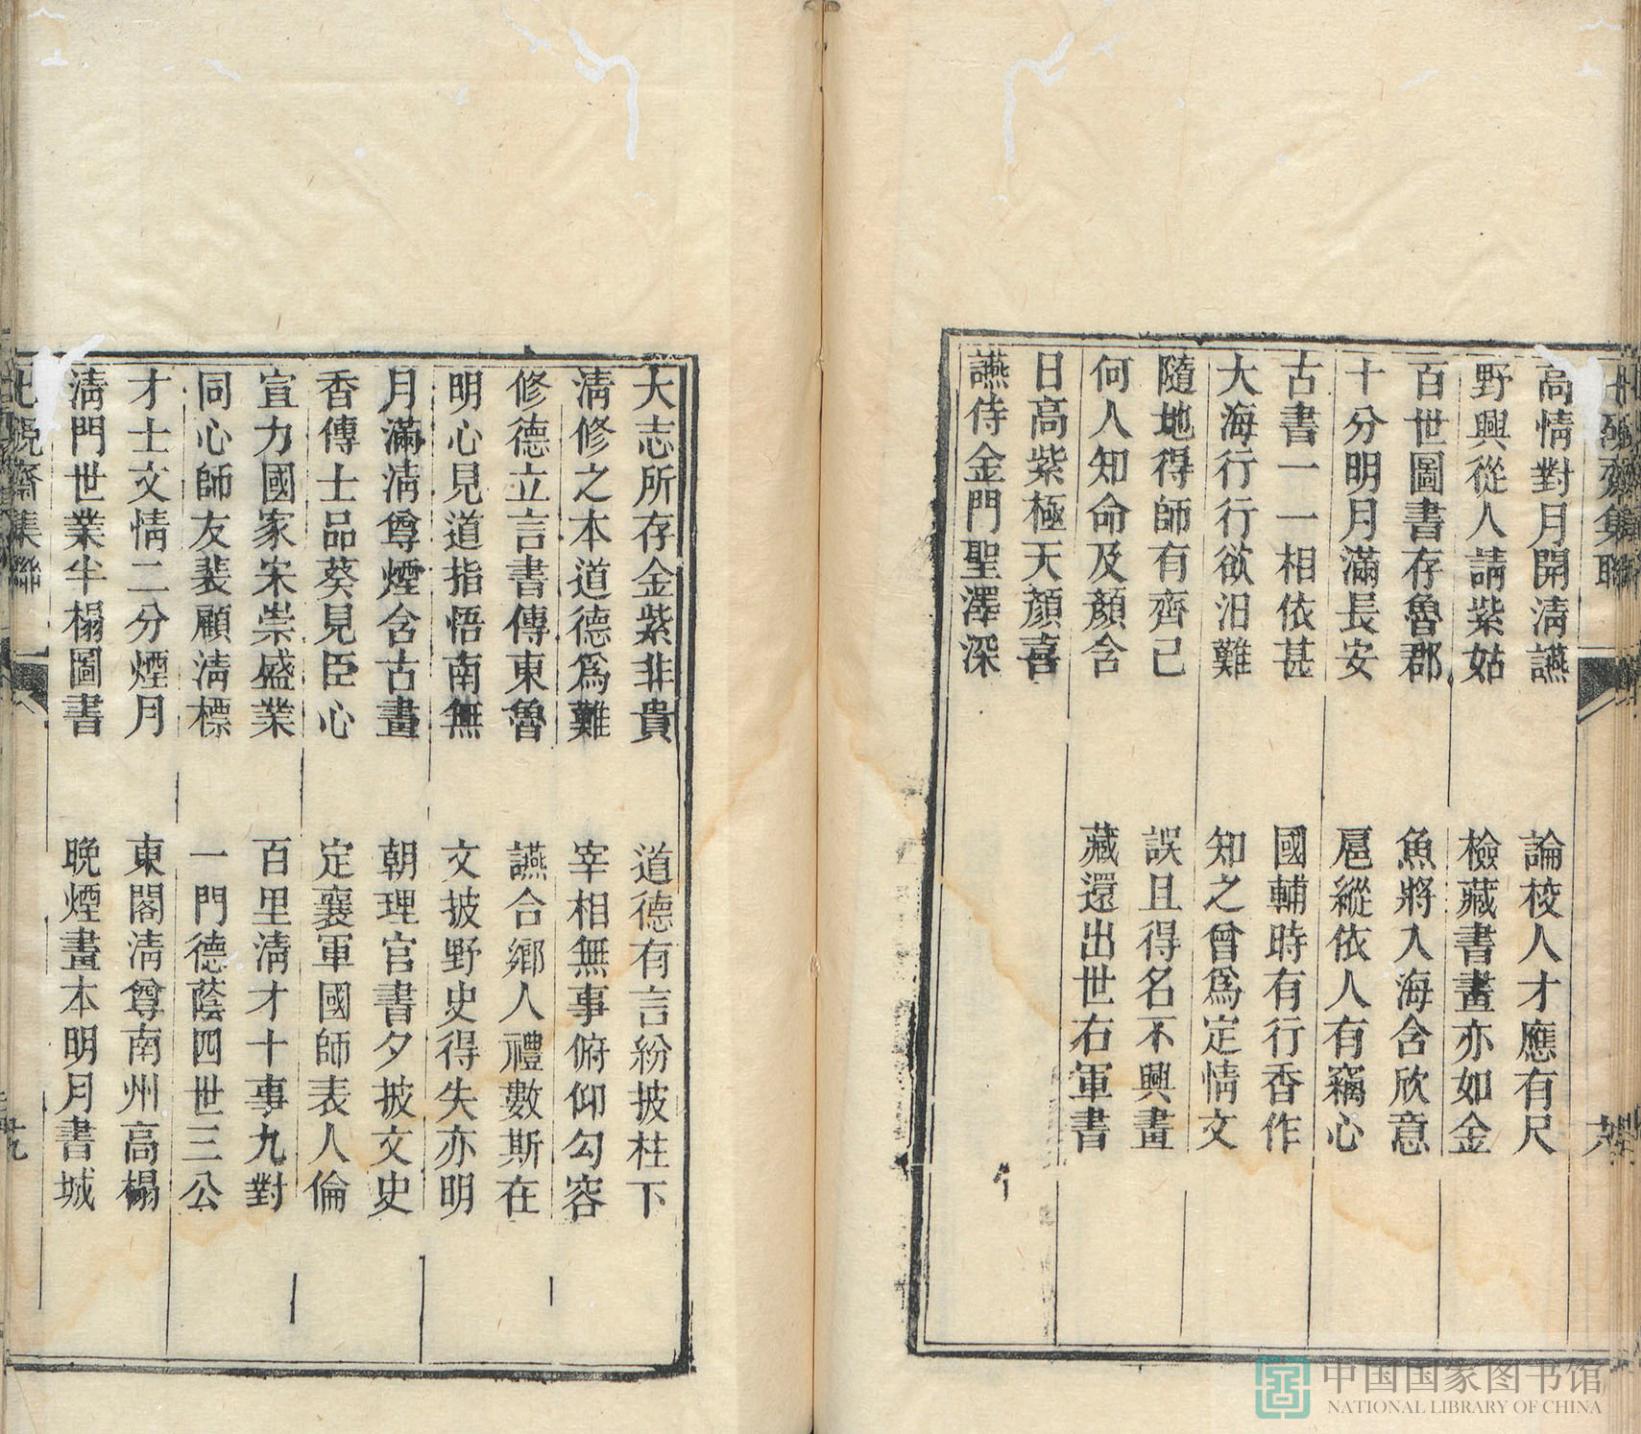 高情對月開淸讌　論校人才應有尺
野興從人請紫姑　檢藏書畫亦如金
百世圖書存魯郡　魚將入海含欣意
十分明月滿長安　扈縱依人有竊心
古書一一相依甚　國輔時有行香作
大海行行欲汨難　知之曾爲定情文
隨地得師有齊己　誤且得名不興畫
何人知命及顏含　藏還出世右軍書
日高紫極天顏喜
讌侍金門聖澤深
大志所存金紫非貴　道德有言紛披柱下
淸修之本道德爲難　宰相無事俯仰勾容
修德立言書傳東魯　讌合鄉人禮數斯在
明心見道指悟南無　文披野史得失亦明
月滿淸尊煙含古畫　朝理官書夕披文史
香傳士品葵見臣心　定襄軍國師表人倫
宣力國家宋崇盛業　百里淸才十事九對
同心師友裴顧淸標　一門德蔭四世三公
才士文情二分煙月　東閣淸尊南州高榻
淸門世業半榻圖書　晚煙畫本明月書城
齋集聯
九
中国国家图书馆
NATIONAL LIBRARY OF CHINA